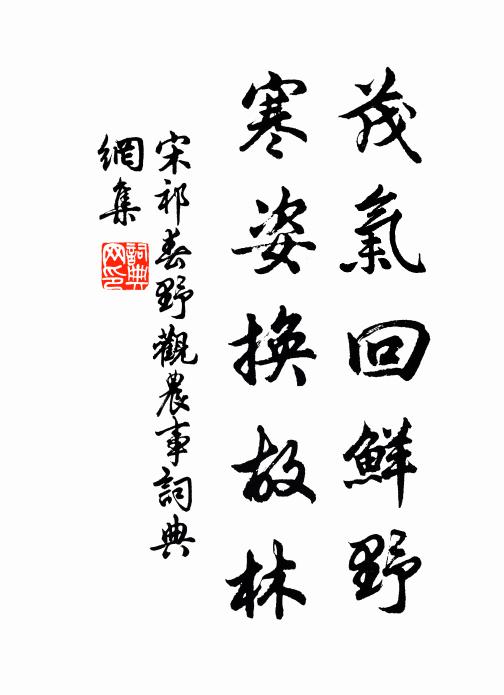 茂氣回鮮野
寒姿換故林
宋祁春野觀農事詞典
網集
詞典
网印